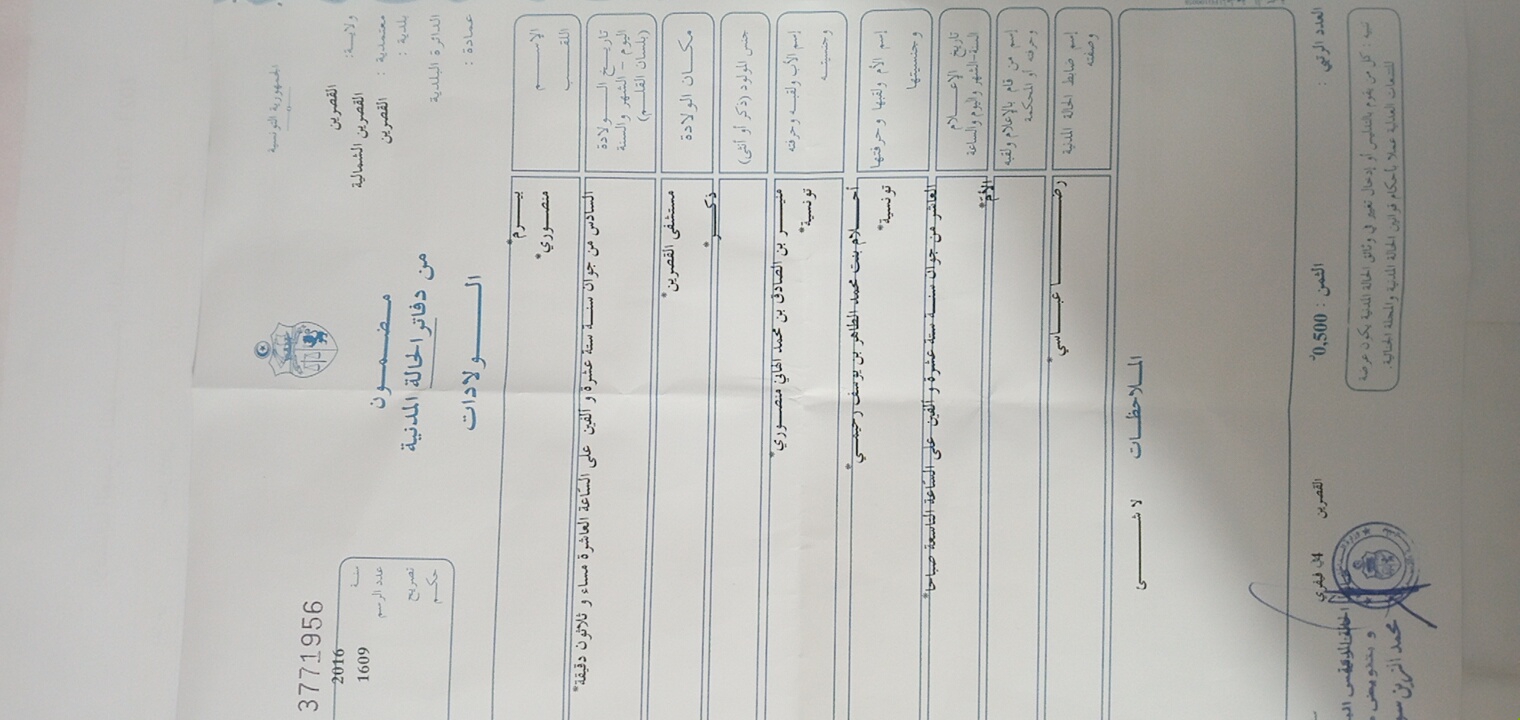 الجمهورية التونسية
ولاية: القصرين
معتمدية : القصرين الشمالية
بلدية : القصرين
الدائرة البلدية
عمادة :
مضمون
من دفاتر الحالة المدنية
الولادات
3771956
سنة 2016
عدد الرسم 1609
تصريح
حكم
الاسم
بيرم*
اللقب
منصوري*
تاريخ الولادة
اليوم - الشهر والسنة
(بلسان القلم)
السادس من جوان سنة ستة عشرة و ألفين على الساعة العاشرة مساء و ثلاثون دقيقة*
مكان الولادة
مستشفى القصرين*
جنس المولود (ذكر أو أنثى)
ذكر*
إسم الأب ولقبه وحرفته
منير بن الصادق بن محمد الهاني منصوري*
وجنسيته
تونسية*
إسم الأم ولقبها وحرفتها
أحلام بنت محمد الطاهر بن يوسف رحيمي*
وجنسيتها
تونسية*
تاريخ الإعلام
السنة-الشهر واليوم والساعة
العاشر من جوان سنة ستة عشرة و ألفين على الساعة التاسعة صباحا*
إسم من قام بالإعلام ولقبه
وحرفته أو المحكمة
الأم*
إسم ضابط الحالة المدنية
وصفته
رضا عباسي*
الملاحظات
لا شيء
العدد الرتبي :
الثمن : 0,500
القصرين
فيفري
تنبيه : كل من يقوم بالتدليس أو إدخال تغيير في وثائق الحالة المدنية يكون عرضة
للتتبعات العدلية عملا بأحكام قوانين الحالة المدنية والمجلة الجنائية.
و بتفويض
محمد الزين